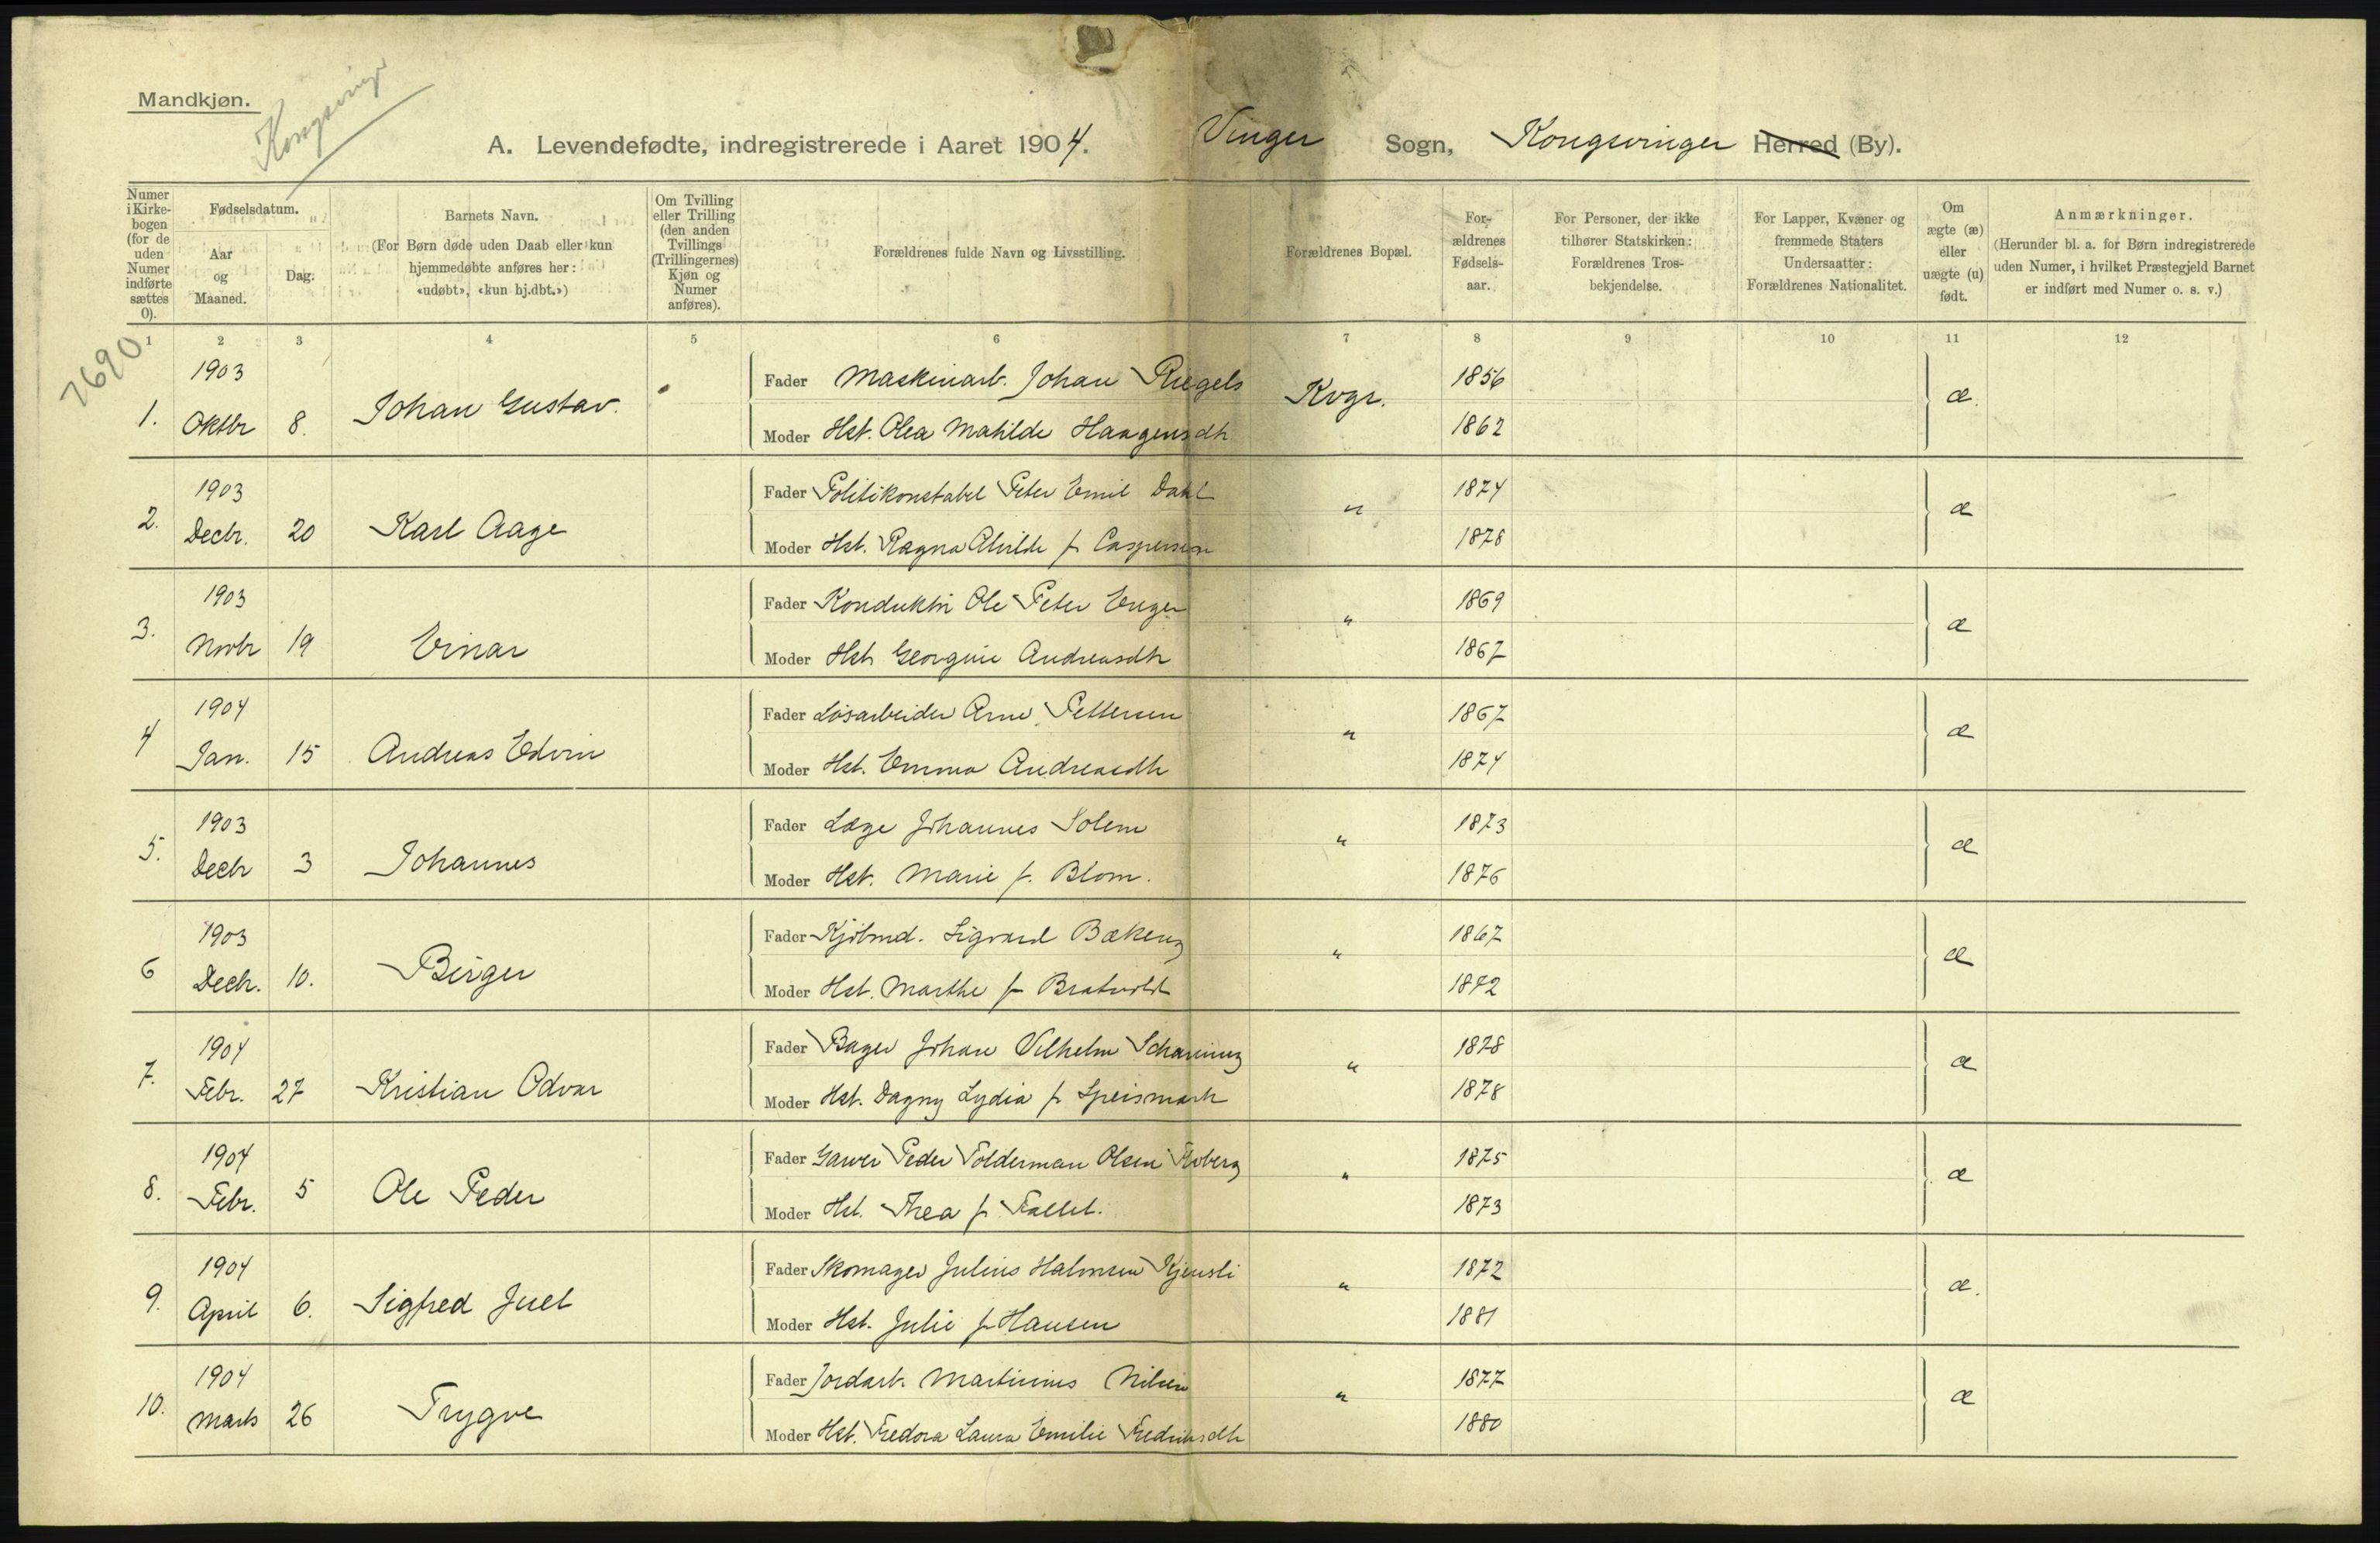 Mandkjøn.
Kongsvinger
A. Levendefødte, indregistrerede i Aaret 1904. Vinger Sogn, Kongsvinger Herred (By).
Numer i Kirkebogen (for de uden Numer indførte sættes 0).
Fødselsdatum.
Aar og Maaned.
Dag.
Barnets Navn.
(For Børn døde uden Daab eller kun hjemmedøbte anføres her: «udøbt», «kun hj.dbt.»)
Om Tvilling eller Trilling (den anden Tvillings (Trillingernes) Kjøn og Numer anføres).
Forældrenes fulde Navn og Livsstilling.
Forældrenes Bopæl.
Forældrenes Fødselsaar.
For Personer, der ikke tilhører Statskirken: Forældrenes Trosbekjendelse.
For Lapper, Kvæner og fremmede Staters Undersaatter: Forældrenes Nationalitet.
Om ægte (æ) eller uægte (u) født.
Anmærkninger.
(Herunder bl. a. for Børn indregistrerede uden Numer, i hvilket Præstegjeld Barnet er indført med Numer o. s. v.)
1 2 3 4 5 6 7 8 9 10 11 12
7690
1903 Fader Maskinarb. Johan Riegels Kvgr. 1856 æ.
1. Oktbr 8. Johan Gustav. Moder Hst. Olea Matilde Haagensdtr 1862
1903 Fader Politikonstabel Peter Emil Dahl " 1874 æ
2. Decbr. 20 Karl Aage Moder Hst. Ragna Alvilde f. Caspersen 1878
1903 Fader Konduktør Ole Peter Enger " 1869 æ
3. Novbr 19 Einar Moder Hst. Georgine Andreasdtr 1867
1904 Fader Løsarbeider Arne Pettersen " 1867 æ
4 Jan. 15 Andreas Edvin Moder Hst. Emma Andreasdtr 1874
1903 Fader Læge Johannes Solem " 1873 æ
5. Decbr 3 Johannes Moder Hst. Marie f. Blom. 1876
1903 Fader Kjøbmd. Sigvard Bækeng " 1867 æ
6 Decbr. 10. Birger Moder Hst. Marthe f. Bratvold 1872
1904 Fader Bager Johan Vilhelm Schanning " 1878 æ
7. Febr. 27 Kristian Odvar Moder Hst. Dagny Lydia f. Speismark 1878
1904 Fader Garver Peder Polderman Olsen Froberg " 1875 æ
8. Febr. 5 Ole Peder Moder Hst. Thea f. Fallet. 1873
1904 Fader Skomager Julius Halvorsen Kjensli " 1872 æ.
9. April 6. Sigfred Juel Moder Hst. Julie f. Hansen 1881
1904 Fader Jordarb. Martinius Nilsen " 1877 æ
10. Marts 26 Trygve Moder Hst. Fredora Laura Emilie Fredriksdtr 1880